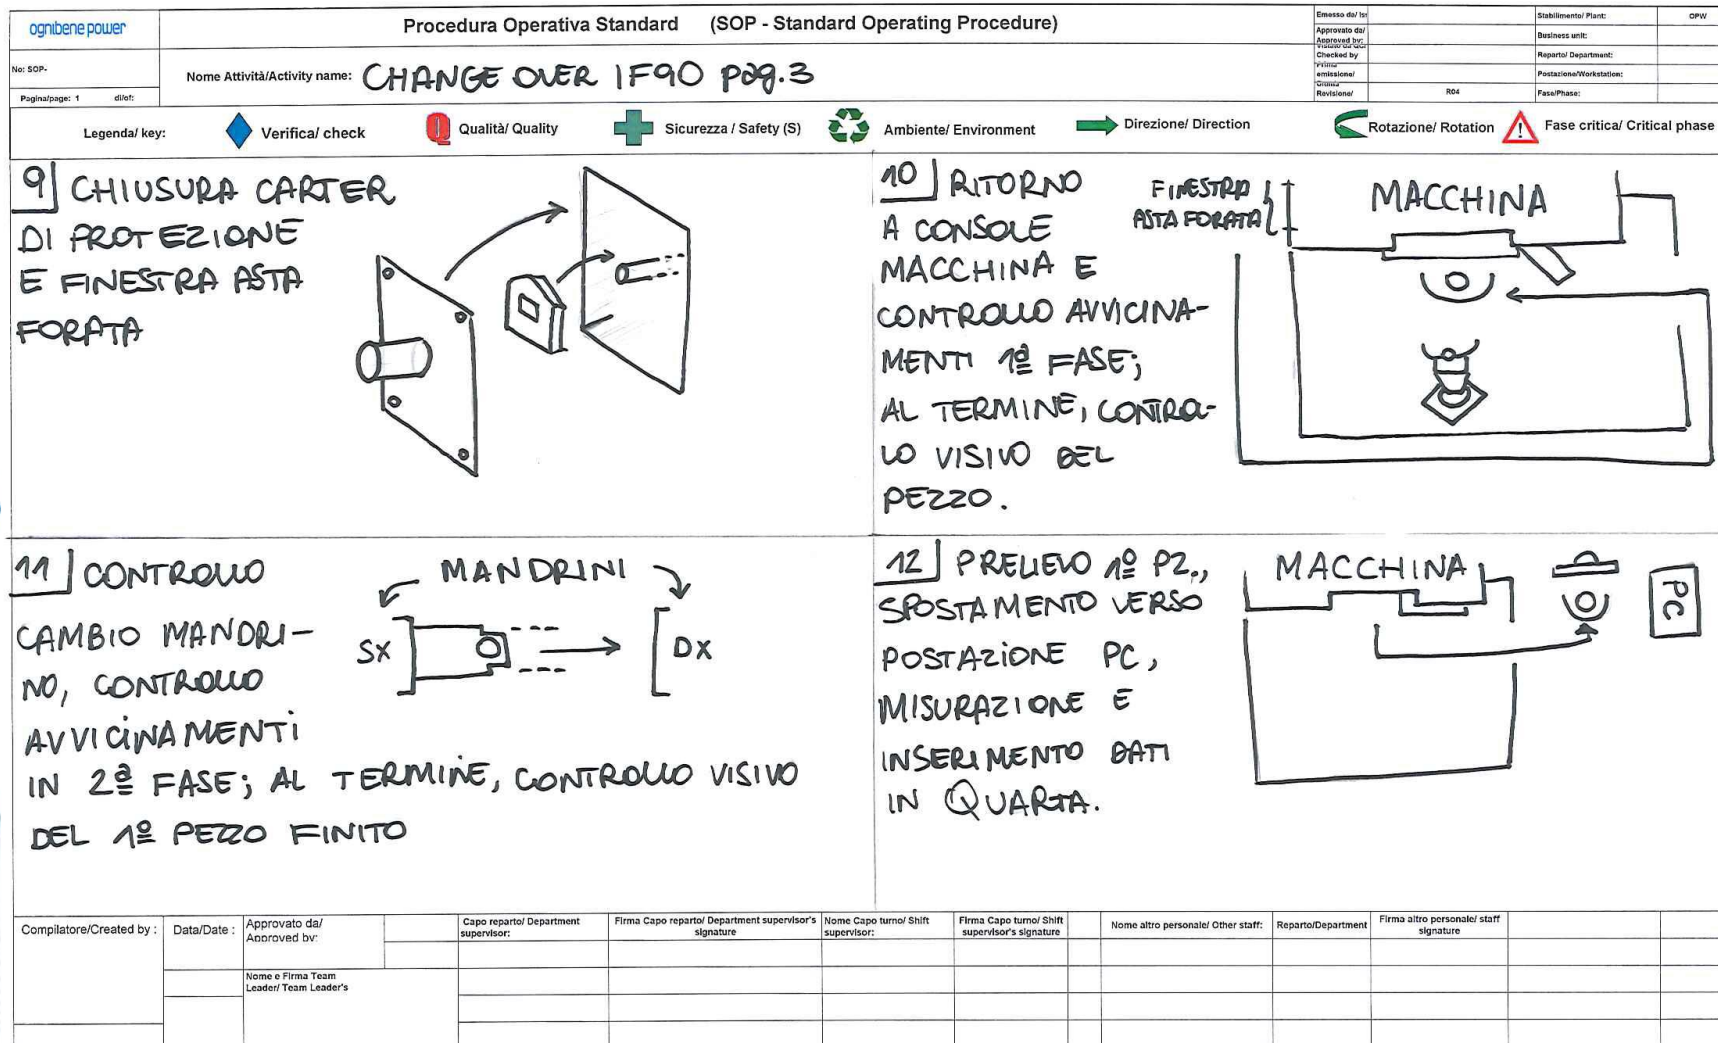 ognibene power
Procedura Operativa Standard (SOP - Standard Operating Procedure)
Emesso da/ Iss
Stabilimento/ Plant:
OPW
Approvato da/
Approved by:
Business unit:
Checked by
Reparto/ Department:
emissione/
Postazione/Workstation:
Revisione/
R04
Fase/Phase:
No: SOP-
Nome Attività/Activity name: CHANGE OVER IF90 pag.3
Pagina/page: 1 di/of:
Legenda/ key:
Verifica/ check
Q Qualità/ Quality
Sicurezza / Safety (S)
Ambiente/ Environment
Direzione/ Direction
Rotazione/ Rotation
! Fase critica/ Critical phase
9 CHIUSURA CARTER
DI PROTEZIONE
E FINESTRA ASTA
FORATA
10 RITORNO
A CONSOLE
MACCHINA E
CONTROLLO AVVICINA-
MENTI 1ª FASE;
AL TERMINE, CONTROL-
LO VISIVO DEL
PEZZO.
FINESTRA
ASTA FORATA
MACCHINA
11 CONTROLLO
CAMBIO MANDRI-
NO, CONTROLLO
AVVICINAMENTI
IN 2ª FASE; AL TERMINE, CONTROLLO VISIVO
DEL 1º PEZZO FINITO
MANDRINI
SX
DX
12 PRELIEVO 1º PZ.,
SPOSTAMENTO VERSO
POSTAZIONE PC,
MISURAZIONE E
INSERIMENTO DATI
IN QUARTA.
MACCHINA
PC
Compilatore/Created by :
Data/Date :
Approvato da/
Approved by:
Capo reparto/ Department
supervisor:
Firma Capo reparto/ Department supervisor's
signature
Nome Capo turno/ Shift
supervisor:
Firma Capo turno/ Shift
supervisor's signature
Nome altro personale/ Other staff:
Reparto/Department
Firma altro personale/ staff
signature
Nome e Firma Team
Leader/ Team Leader's